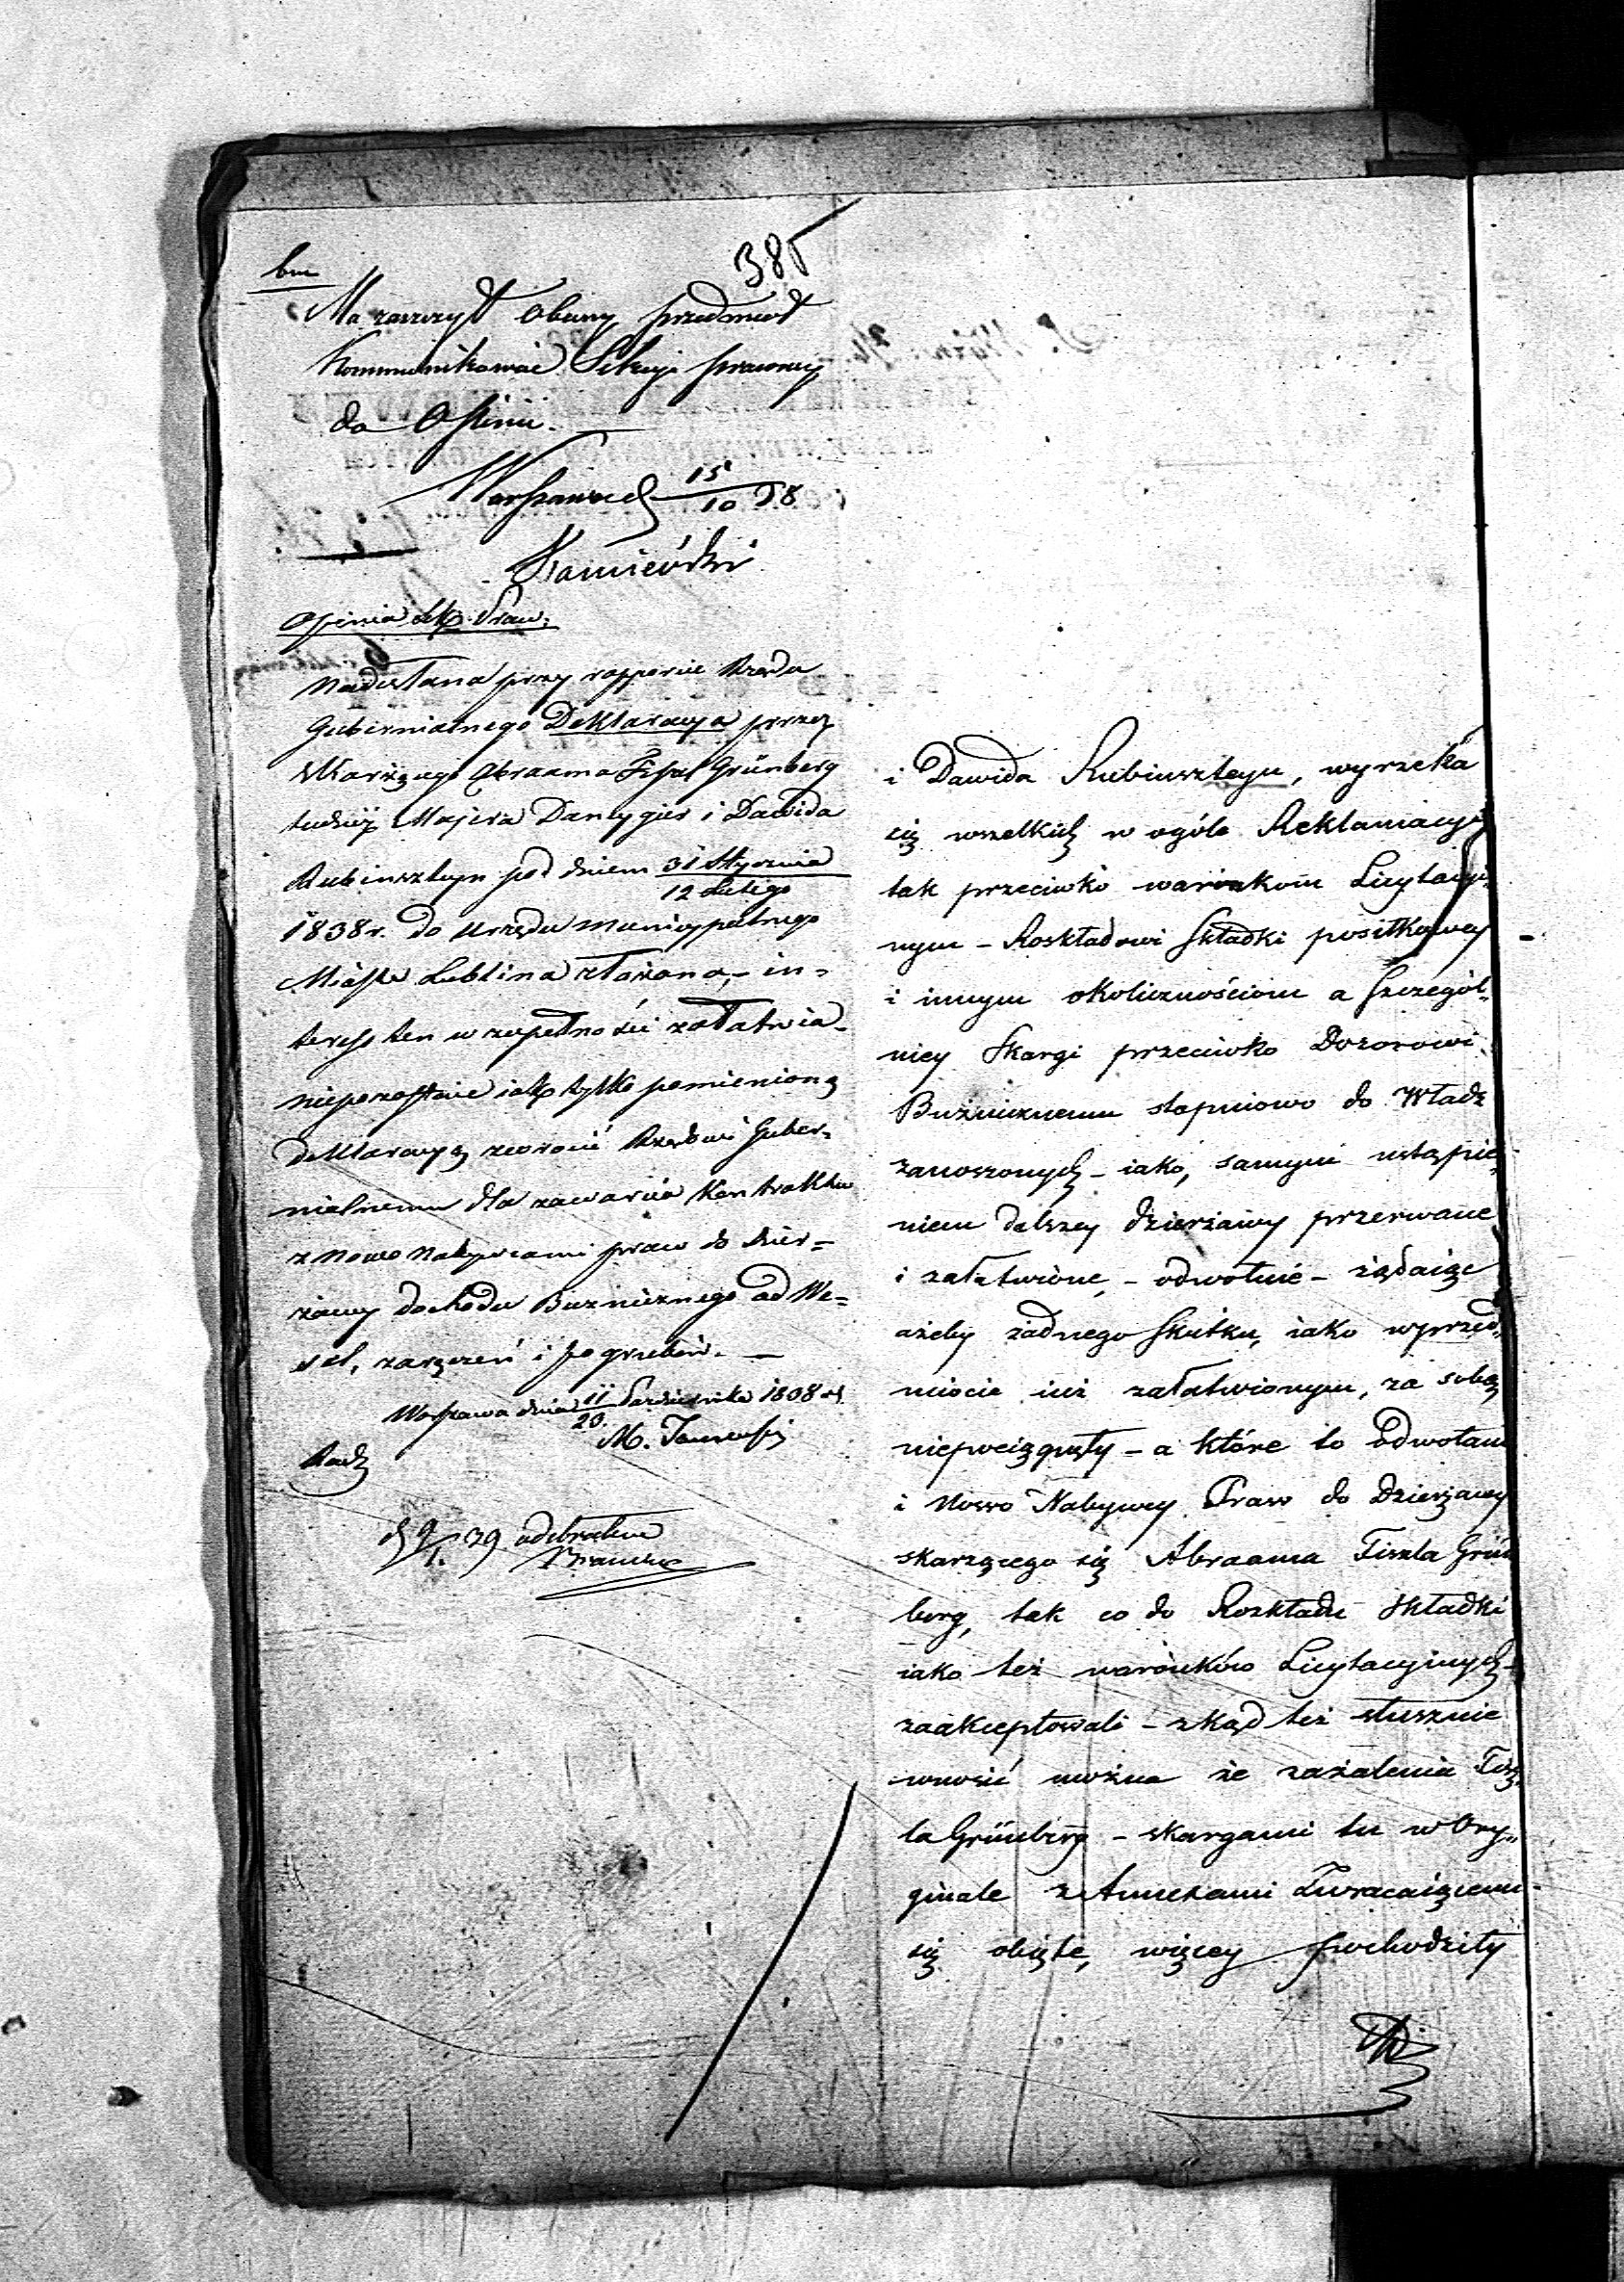 385
bm
Ma zaszczyt obecny przedmiot
Kommunikować Sekcyi prawney
do Opinii. —
Warszawa d 15/10 38
Opinia Sek. Praw:
Nadesłana przy rapporcie Rządu
Gubernialnego Deklaracya przez
Skarżącego Abraama Fiszl Grünberg
tudzież Majera Dancygier i Dawida
Rubinsztejn pod dniem 31 Stycznia
12 Lutego
1838 r. do Urzędu Municypalnego
Miasta Lublina złożona, – in=
teress ten w zupełności załatwia –
niepozostaie iak tylko pomienioną
deklaracyą zwrócić Rządowi Guber=
nialnemu dla zawarcia Kontraktu
z Nowo Nabywcami praw do dzier=
żawy dochodu Bużnicznego od We=
sel, zaręczeń i pogrzebów. —
Warszawa dnia 11/23 Października 1838 r.
Radz
d 9/1. 39 odebrałem
i Dawida Rubinszteyn, wyrzeka
się wszelkich w ogóle Reklamacyi
tak przeciwko warunkom Licytacyi=
nym – Roskładowi Składki posiłkowey –
i innym okolicznościom a szczegól=
niey Skargi przeciwko Dozorowi
Bużnicznemu stopniowo do Władz
zanoszonych – iako, samym ustąpie=
niem dalszey dzierżawy przerwane
i załatwione, – odwołuie – żądaiąc
ażeby żadnego skutku, iako w przed=
miocie iuż załatwionym, za sobą
niepociągnęły – a które to odwołanie
i Nowo Nabywcy Praw do Dzierżawy
skarżącego się Abraama Fiszla Grün
berg, tak co do Rozkładu Składki
iako też warunków Licytacyinych –
zaakceptowali – zkąd też słusznie
wnosić można że zażalenia Fisz=
la Grünberg – skargami tu w Ory=
ginale z Annexami Zwracaiącemi
się obięte, więcey pochodziły